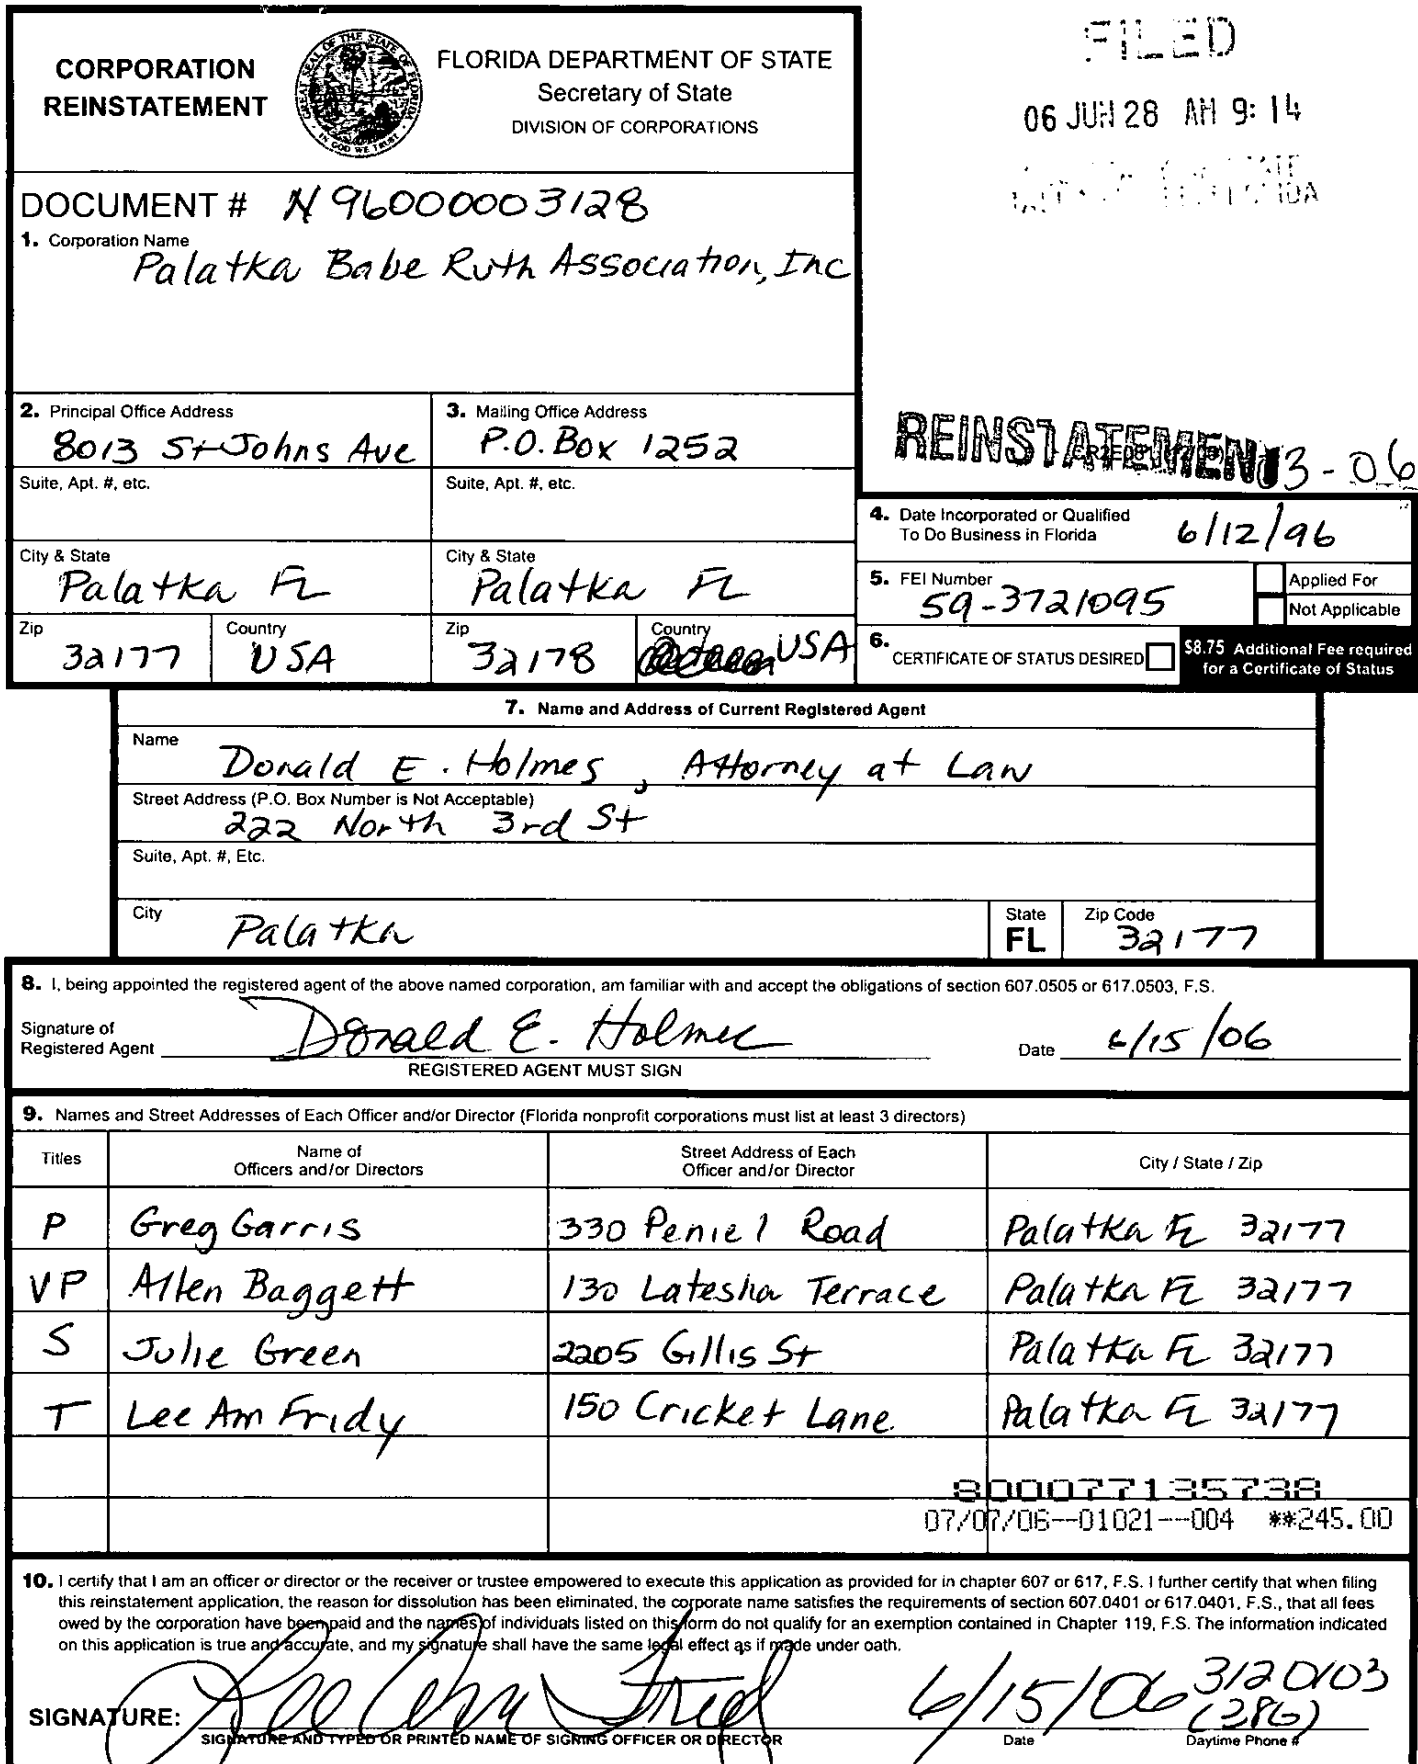 CORPORATION
REINSTATEMENT
GREAT SEAL OF THE STATE OF FLORIDA
IN GOD WE TRUST
FLORIDA DEPARTMENT OF STATE
Secretary of State
DIVISION OF CORPORATIONS
FILED
06 JUN 28 AM 9:14
DOCUMENT # N96000003128
1. Corporation Name
Palatka Babe Ruth Association, Inc
2. Principal Office Address
8013 St Johns Ave
3. Mailing Office Address
P.O. Box 1252
REINSTATEMENT 03-06
Suite, Apt. #, etc.
Suite, Apt. #, etc.
4. Date Incorporated or Qualified
To Do Business in Florida
6/12/96
City & State
Palatka FL
City & State
Palatka FL
5. FEI Number
59-3721095
Applied For
Not Applicable
Zip
32177
Country
USA
Zip
32178
Country
USA
6. CERTIFICATE OF STATUS DESIRED
$8.75 Additional Fee required
for a Certificate of Status
7. Name and Address of Current Registered Agent
Name
Donald E. Holmes, Attorney at Law
Street Address (P.O. Box Number is Not Acceptable)
222 North 3rd St
Suite, Apt. #, Etc.
City
Palatka
State
FL
Zip Code
32177
8. I, being appointed the registered agent of the above named corporation, am familiar with and accept the obligations of section 607.0505 or 617.0503, F.S.
Signature of
Registered Agent
Donald E. Holmes
Date 6/15/06
REGISTERED AGENT MUST SIGN
9. Names and Street Addresses of Each Officer and/or Director (Florida nonprofit corporations must list at least 3 directors)
Titles
Name of
Officers and/or Directors
Street Address of Each
Officer and/or Director
City / State / Zip
P Greg Garris 330 Peniel Road Palatka FL 32177
VP Allen Baggett 130 Latesha Terrace Palatka FL 32177
S Julie Green 2205 Gillis St Palatka FL 32177
T Lee Ann Fridy 150 Cricket Lane. Palatka FL 32177
800077135738
07/07/06--01021--004 **245.00
10. I certify that I am an officer or director or the receiver or trustee empowered to execute this application as provided for in chapter 607 or 617, F.S. I further certify that when filing
this reinstatement application, the reason for dissolution has been eliminated, the corporate name satisfies the requirements of section 607.0401 or 617.0401, F.S., that all fees
owed by the corporation have been paid and the names of individuals listed on this form do not qualify for an exemption contained in Chapter 119, F.S. The information indicated
on this application is true and accurate, and my signature shall have the same legal effect as if made under oath.
SIGNATURE:
6/15/06
(386)
SIGNATURE AND TYPED OR PRINTED NAME OF SIGNING OFFICER OR DIRECTOR
Date
Daytime Phone #